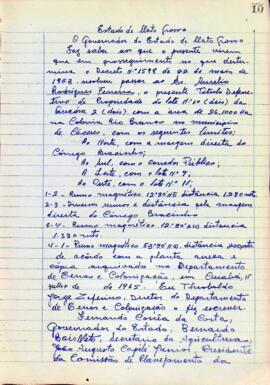 10
Estado de Mato Grosso
O Governador do Estado de Mato Grosso
Faz saber aos que o presente virem
que em prosseguimento no que deter-
mina o Decreto nº 1598 de 22 de maio de
1953, resolveu passar ao Sr. Aurelio
Rodrigues Ferreira, o presente Titulo Defini-
tivo de Propriedade do lote nº 10 (déis) da
Quadra 2 (dois) com a área de 26.1000 ha
na Colonia Rio Branco no municipio
de Cáceres, com os seguintes limites:
Ao Norte, com a margem direita do
Córrego Bracinho;
Ao Sul, com o corredor Público;
A Leste, com o lote nº 9;
Ao Oeste, com o lote nº 11;
1-2 - Rumo magnético distância
2-3 - Diversos rumos e distância pela margem
direita do Córrego Bracinho
3-4 - Rumo magnético distância
1.390 mts.
4-1 - Rumo magnético distância 200 mts
de acôrdo com a planta anexa e
cópia arquivada no Departamento
de Terras e Colonização, em Cuiabá, 15
julho de de 1965. Eu Theobaldo
Jorge Zeferino, Diretor do Departamento
de Terras e Colonização o fiz escrever.
Fernando Corrêa da Costa,
Governador do Estado, Bernardo
Bais Neto, Secretario da Agricultura,
João Augusto Capilé Junior, Presidente
da Comissão de Planejamento da